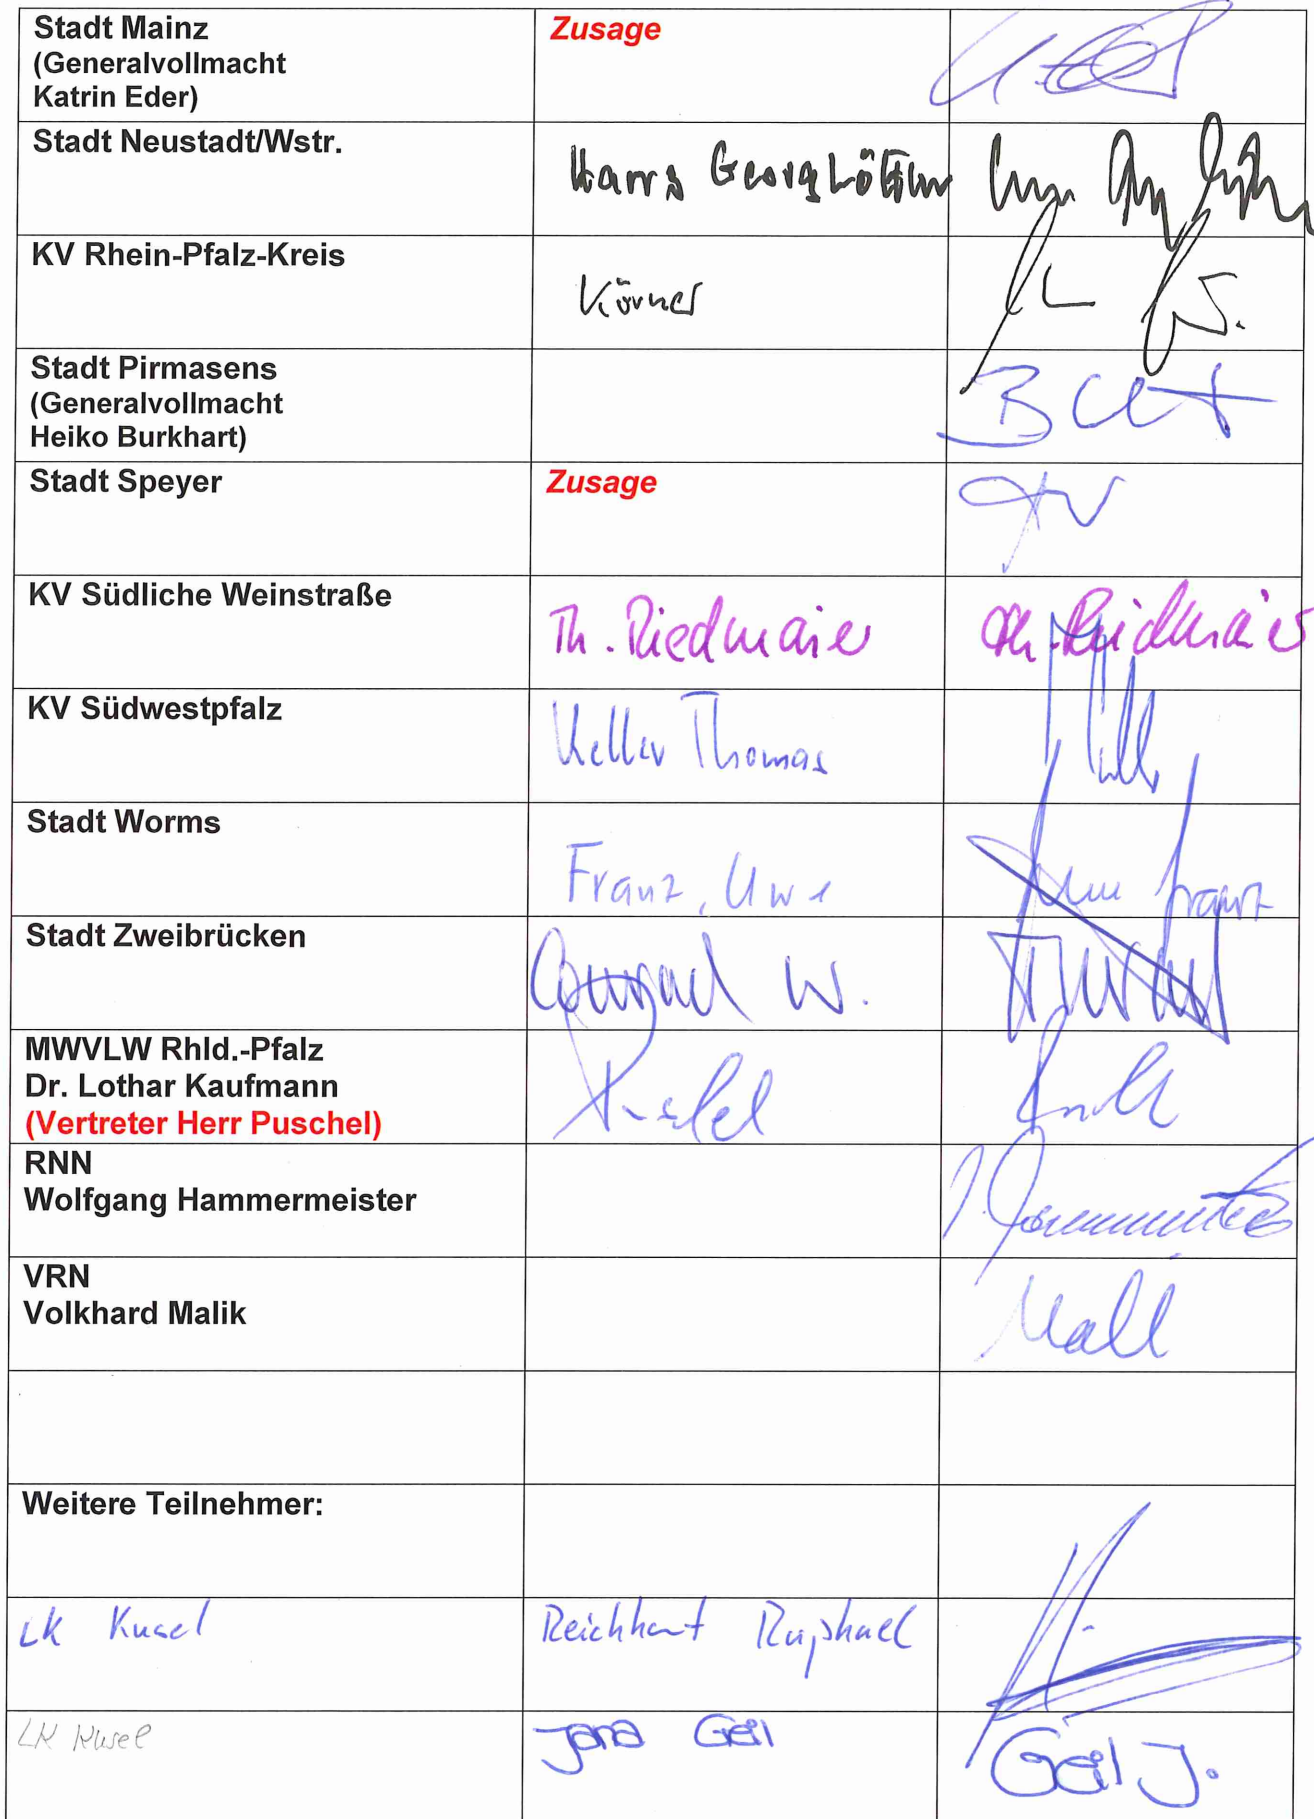 Stadt Mainz
(Generalvollmacht
Katrin Eder)
Zusage
Stadt Neustadt/Wstr.
Hans Georg Löffler
KV Rhein-Pfalz-Kreis
Körner
Stadt Pirmasens
(Generalvollmacht
Heiko Burkhart)
Stadt Speyer
Zusage
KV Südliche Weinstraße
Th. Riedmaier Th. Riedmaier
KV Südwestpfalz
Keller Thomas
Stadt Worms
Franz, Uwe
Uwe Franz
Stadt Zweibrücken
W.
MWVLW Rhld.-Pfalz
Dr. Lothar Kaufmann
(Vertreter Herr Puschel)
RNN
Wolfgang Hammermeister
VRN
Volkhard Malik
Weitere Teilnehmer:
LK Kusel Reichhart Raphael
LK Kusel Jana Geil Geil J.